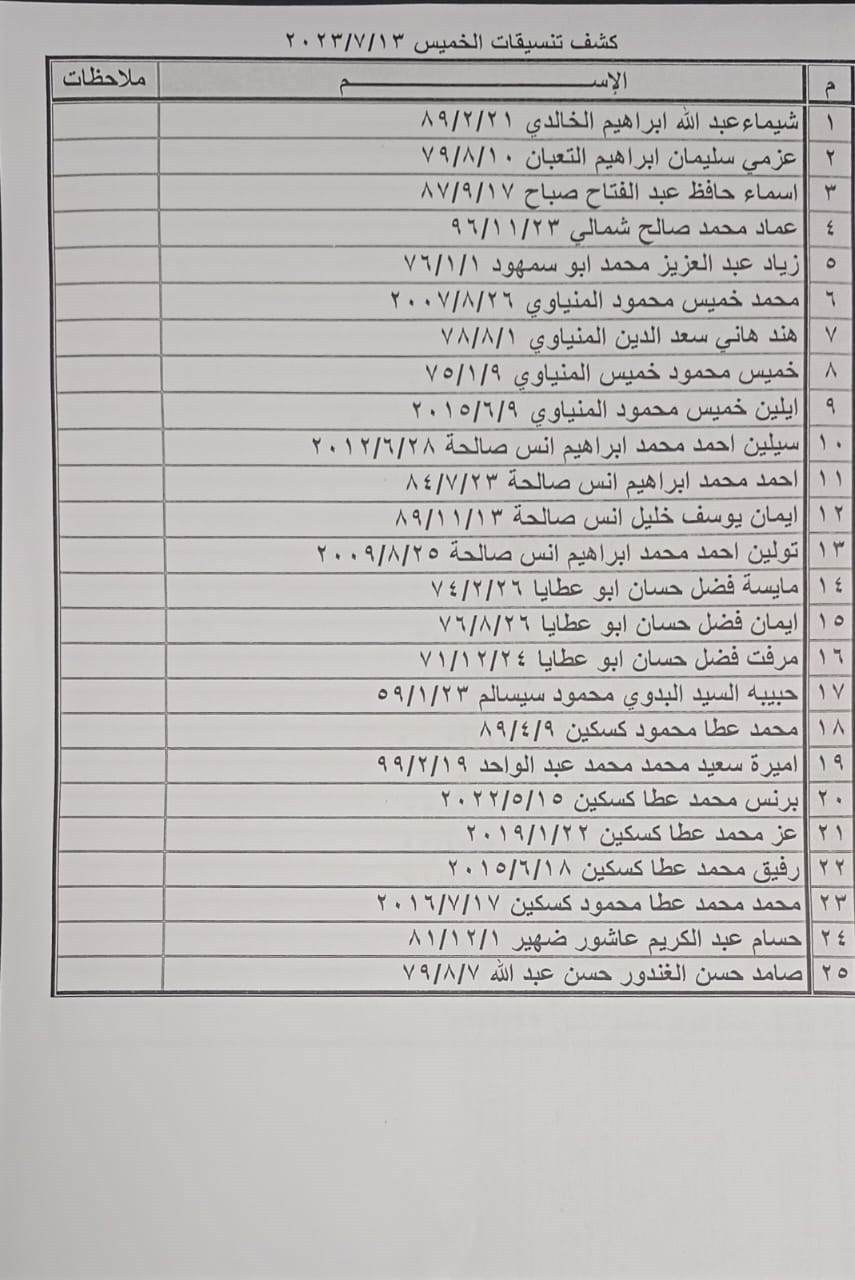 كشف تنسيقات الخميس ٢٠٢٣/٧/١٣
م الإســـــــــــــــــم ملاحظات
١ شيماءعبد الله ابراهيم الخالدي ٨٩/٢/٢١
٢ عزمي سليمان ابراهيم التعبان ٧٩/٨/١٠
٣ اسماء حافظ عبد الفتاح صباح ٨٧/٩/١٧
٤ عماد محمد صالح شمالي ٩٦/١١/٢٣
٥ زياد عبد العزيز محمد ابو سمهود ٧٦/١/١
٦ محمد خميس محمود المنياوي ٢٠٠٧/٨/٢٦
٧ هند هاني سعد الدين المنياوي ٧٨/٨/١
٨ خميس محمود خميس المنياوي ٧٥/١/٩
٩ ايلين خميس محمود المنياوي ٢٠١٥/٦/٩
١٠ سيلين احمد محمد ابراهيم انس صالحة ٢٠١٢/٦/٢٨
١١ احمد محمد ابراهيم انس صالحة ٨٤/٧/٢٣
١٢ ايمان يوسف خليل انس صالحة ٨٩/١١/١٣
١٣ تولين احمد محمد ابراهيم انس صالحة ٢٠٠٩/٨/٢٥
١٤ مايسة فضل حسان ابو عطايا ٧٤/٢/٢٦
١٥ ايمان فضل حسان ابو عطايا ٧٦/٨/٢٦
١٦ مرفت فضل حسان ابو عطايا ٧١/١٢/٢٤
١٧ حبيبه السيد البدوي محمود سيسالم ٥٩/١/٢٣
١٨ محمد عطا محمود كسكين ٨٩/٤/٩
١٩ اميرة سعيد محمد محمد عبد الواحد ٩٩/٢/١٩
٢٠ برنس محمد عطا كسكين ٢٠٢٢/٥/١٥
٢١ عز محمد عطا كسكين ٢٠١٩/١/٢٢
٢٢ رفيق محمد عطا كسكين ٢٠١٥/٦/١٨
٢٣ محمد محمد عطا محمود كسكين ٢٠١٦/٧/١٧
٢٤ حسام عبد الكريم عاشور ضهير ٨١/١٢/١
٢٥ صامد حسن الغندور حسن عبد الله ٧٩/٨/٧